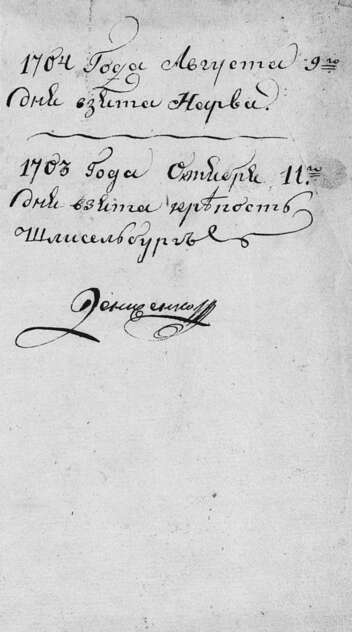 1704 Года Августа 9го
дни взята Нарва.
1703 Года Октибри 11.го
дни взята крѣпость
Шлисельбургъ